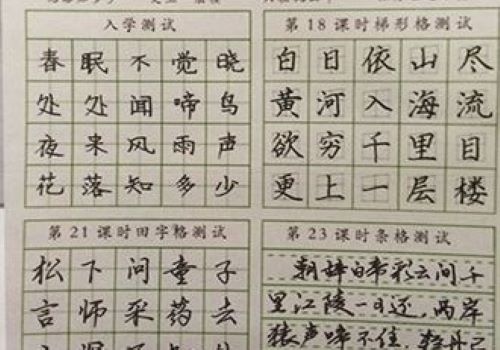 入学测试
春眠不觉晓
处处闻啼鸟
夜来风雨声
花落知多少
第18课时梯形格测试
白日依山尽
黄河入海流
欲穷千里目
更上一层楼
第21课时田字格测试
松下问童子
言师采药去
第23课时条格测试
朝辞白帝彩云间千
里江陵一日还，两岸
猿声啼不住，轻舟已